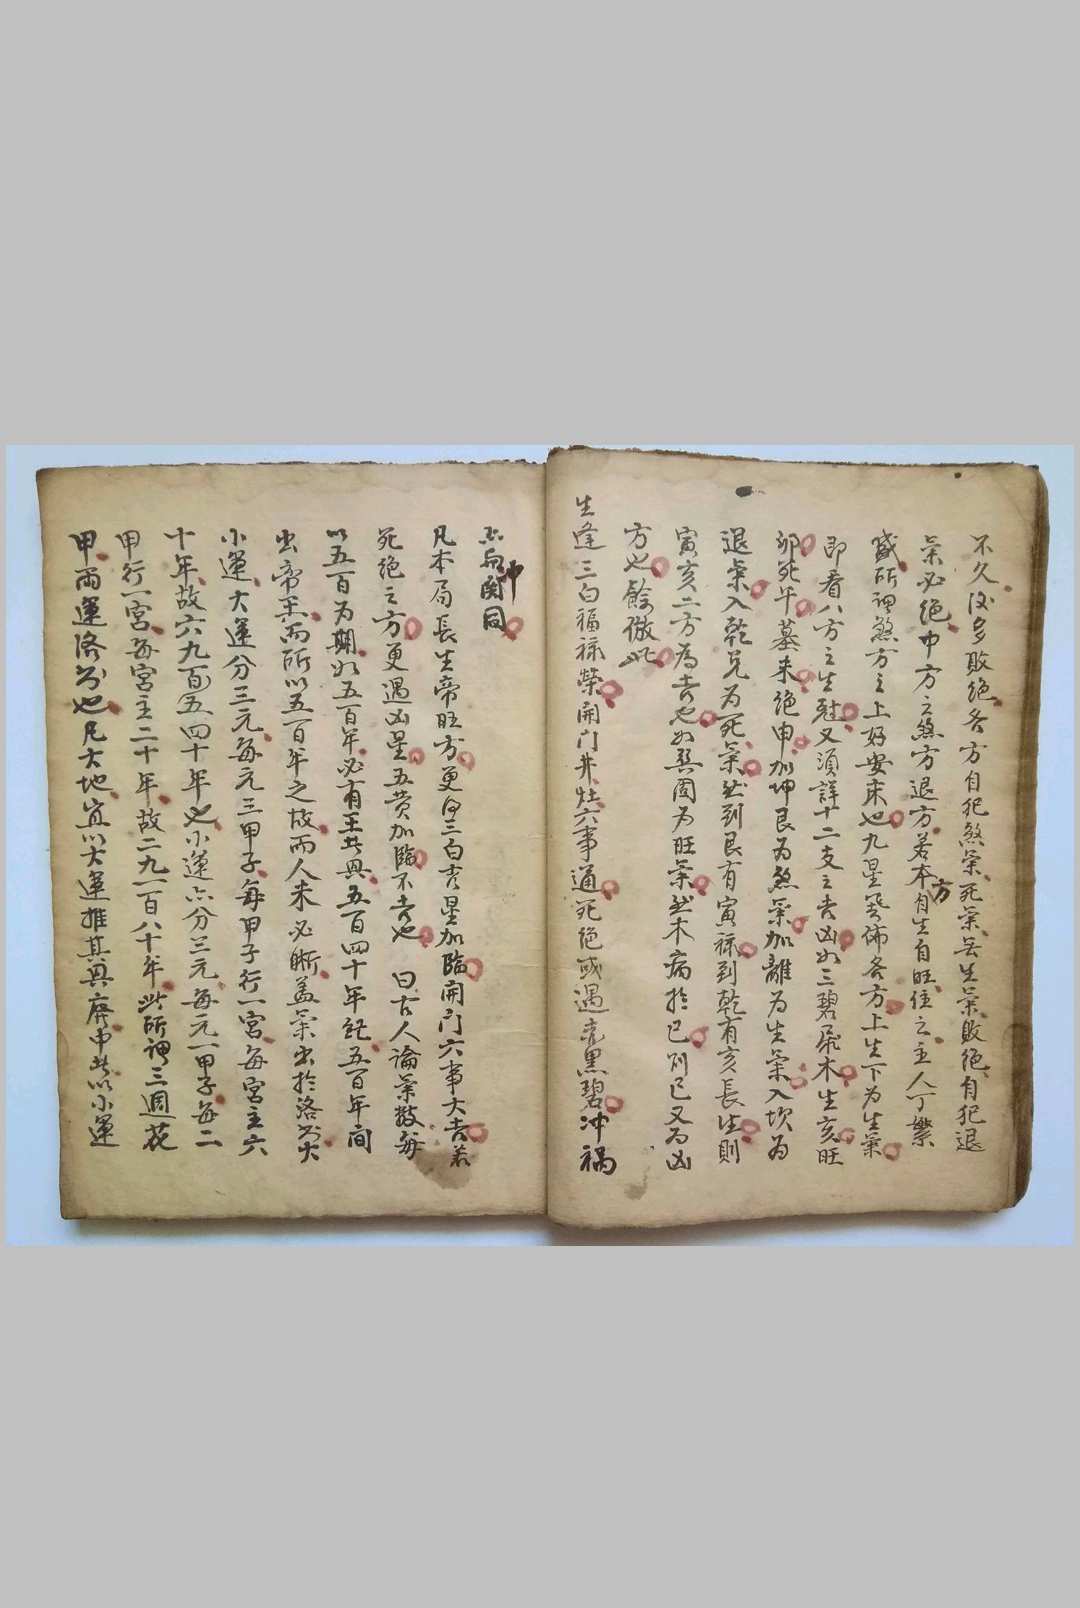 不久多敗絕各方自犯煞氣死氣氣敗絕自犯退
氣必絕中方之煞方退方若本方自生自旺住之主人丁繁
盛所謂煞方之上好安床也九星發佈各方上生下為生氣
即看八方之生尅又須詳十二支之吉凶如三碧屬木生亥旺
卯死午墓未絕申加坤艮為煞氣加離為生氣入坎為
退氣入乾兌為死氣然到艮有寅祿到乾有亥長生則
寅亥二方為吉也如巽固為旺氣然木病於巳則巳又為凶
方也餘倣此
生逢三白福祿榮開門井灶六事通死絕或遇黑碧冲禍
不中與同
凡本局長生帝旺方更得三白吉星加臨開門六事大吉若
死絕之方更遇凶星五黃加臨不吉也 曰古人論氣數每
以五百為期如五百年必有王者興五百四十年五百年間
出帝王而所以五百年之故而人未必晰蓋氣出於洛書大
小運大運分三元每元三甲子每甲子行一宮每宮主六
十年故六九百五四十年也小運亦分三元每元一甲子每二
甲行一宮每宮主二十年故二九一百八十年此所謂三週花
甲兩運洛書也凡大地宜以大運推其興廢中此以小運